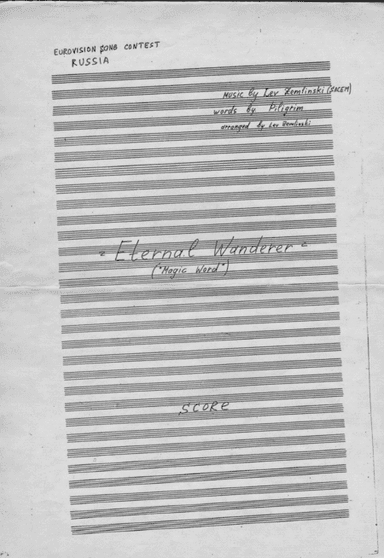 EUROVISION SONG CONTEST
RUSSIA
Music by Lev Zemlinski (SACEM)
words by Piligrim
arranged by Lev Zemlinski
"Eternal Wanderer"
("Magic Word")
SCORE